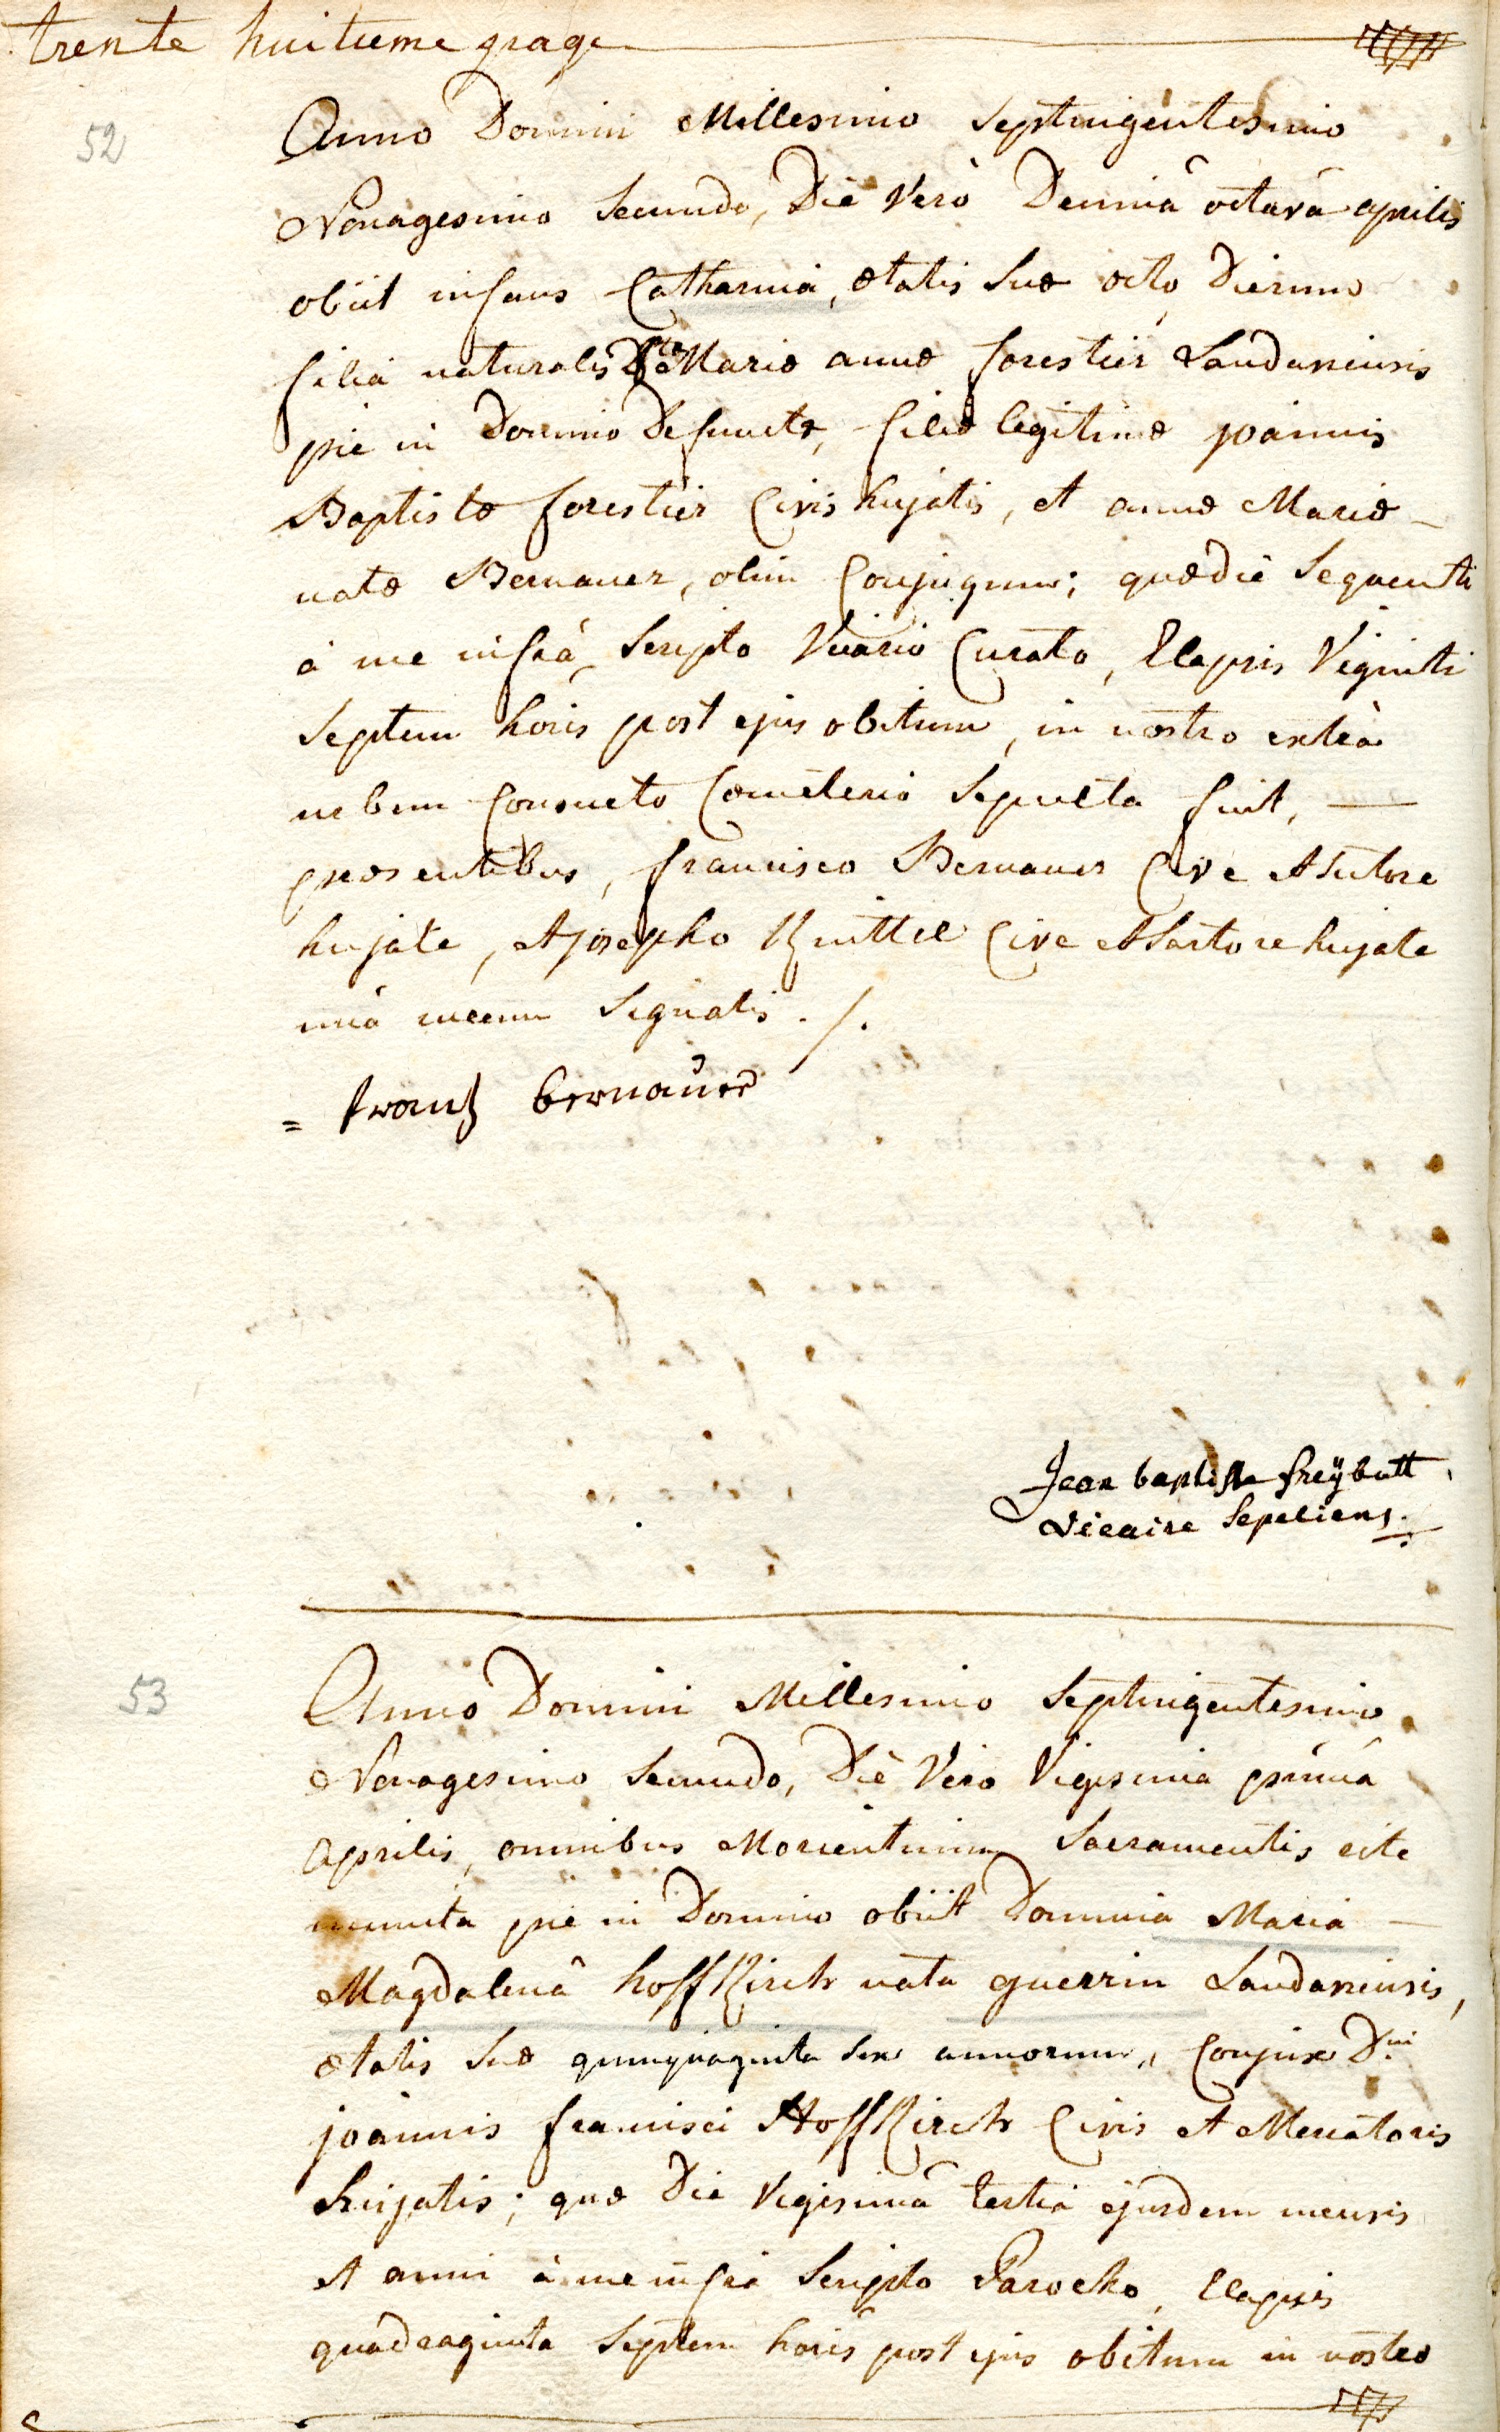 trente huitieme page
52
Anno Domini Millesimo Septingentesimo
Nonagesimo Secundo, Die Verò Decimâ octavâ aprilis
obiit infans Catharina, ætatis suæ octo Dierum
filia naturalis Dtæ Mariæ annæ forestier Landaviensis
pie in Domino Defunctæ, filiæ legitimæ joannis
Baptistæ forestier Civis hujatis, et annæ Mariæ
natæ Bernauer, olim Conjugum; quæ die Sequenti
à me infrà Scripto Vicario Curato, Elapsis Viginti
Septem horis post ejus obitum, in nostro extrà
urbem Consueto Cœmeterio Sepulta fuit,
præsentibus, francisco Bernauer Cive et Sutore
hujate, et josepho Cive et Sartore hujate
unà mecum Signatis ./.
= frantz bernauer
Jean baptiste freÿbutt
Vicaire Sepeliens.
53
Anno Domini Millesimo Septingentesimo
Nonagesimo Secundo, Diè Vero Vigesima primâ
Aprilis, omnibus Morientium Sacramentis rite
munita pie in Domino obiit Domina Maria
Magdalenâ hoffKirch nata guerrin Landaviensis,
ætatis suæ quinquaginta sex annorum, Conjux Dni
joannis francisci HoffKirch Civis et Mercatoris
hujatis; quæ Die Vigesimâ tertiâ ejusdem mensis
et anni à me infrà Scripto Parocho, Elapsis
quadraginta Septem horis post ejus obitum in nostro